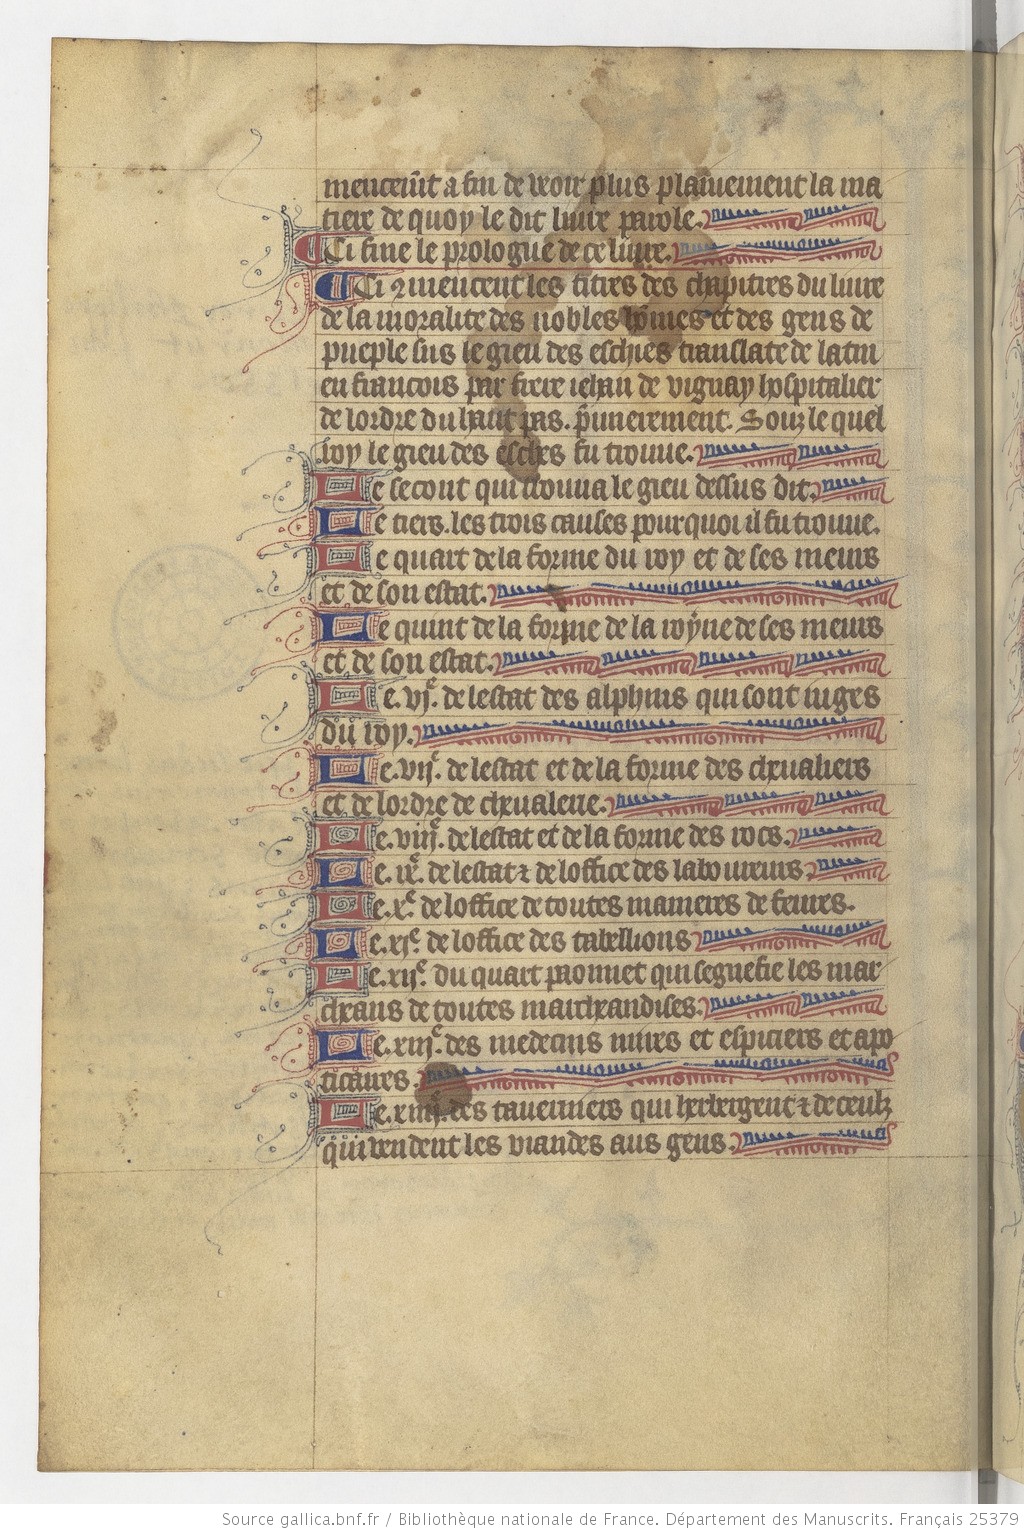 mencem̃t a fin de veoir plus plainement la ma
tiere de quoy le dit liure parole.
Ci fine le prologue de ce liure.
Ci ꝯmencent les titres des chapitres du liure
de la moralite des nobles hom̃es et des gens de
pueple sus le gieu des eschies translate de latin
en francois par frere iehan de vignay hospitalier
de lordre du haut pas. p̃mierement. Souz le quel
roy le gieu des esches fu trouue.
Le secont qui trouua le gieu dessus dit.
Le tiers. les trois causes pourquoi il fu trouue.
Le quart de la forme du roy et de ses meurs
et de son estat.
Le quint de la forme de la royne de ses meurs
et de son estat.
Le. vjͤ. de lestat des alphins qui sont iuges
du roy.
Le. vijͤ. de lestat et de la forme des cheualiers
et de lordre de cheualerie.
Le. viijͤ. de lestat et de la forme des rocs.
Le. ixͤ. de lestat ⁊ de loffice des laboureurs.
Le. xͤ. de loffice de toutes manieres de feures.
Le. xjͤ. de loffice des tabellions
Le. xijͤ. du quart paonnet qui segnefie les mar
cheans de toutes marcheandises.
Le. xiijͤ. des medecins mires et espiciers et apo
ticaires.
Le. xiiijͤ. des tauerniers qui herbergent ⁊ de ceulz
qui vendent les viandes aus gens.
Source gallica.bnf.fr / Bibliothèque nationale de France. Département des Manuscrits. Français 25379